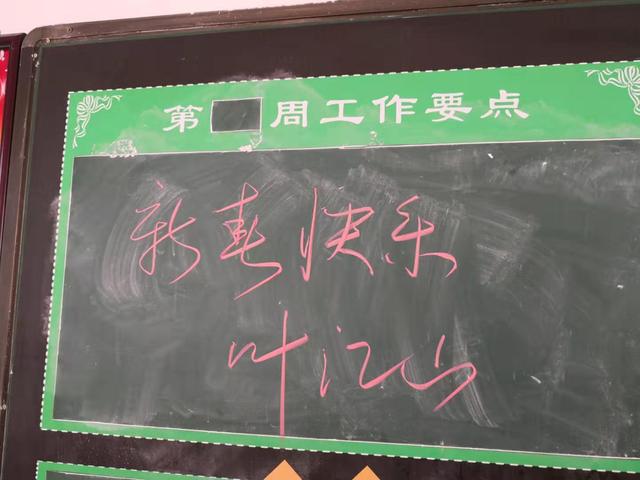 第 周工作要点
新春快乐
叶江山